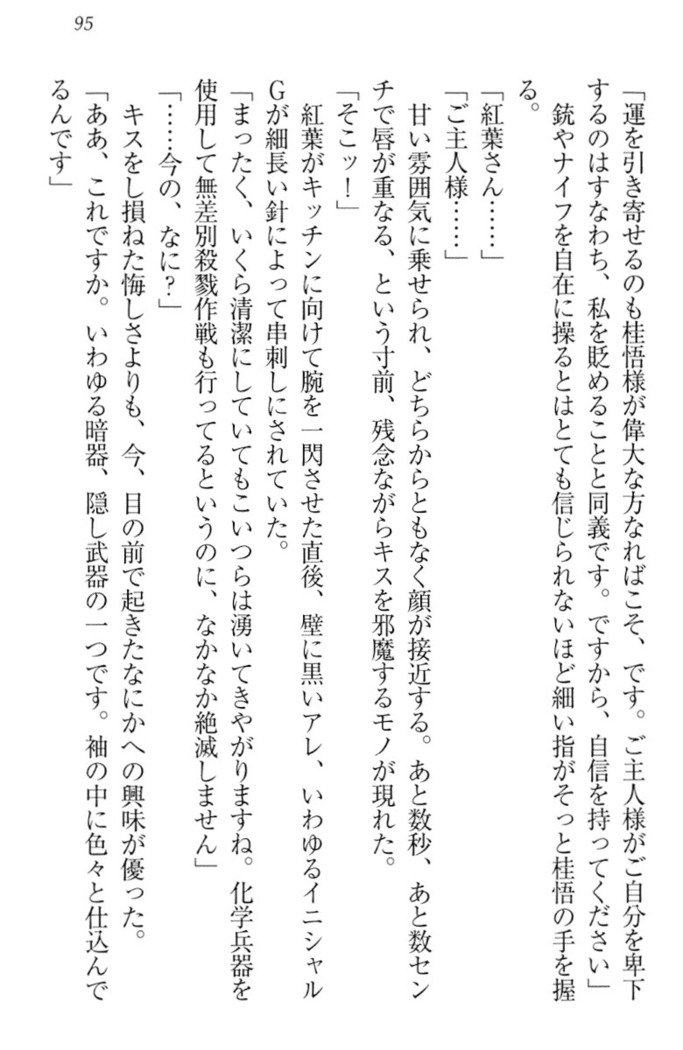 95
「運を引き寄せるのも桂悟様が偉大な方なればこそ、です。ご主人様がご自分を卑下
するのはすなわち、私を貶めることと同義です。ですから、自信を持ってください」
　銃やナイフを自在に操るとはとても信じられないほど細い指がそっと桂悟の手を握
る。
「紅葉さん……」
「ご主人様……」
　甘い雰囲気に乗せられ、どちらからともなく顔が接近する。あと数秒、あと数セン
チで唇が重なる、という寸前、残念ながらキスを邪魔するモノが現れた。
「そこッ！」
　紅葉がキッチンに向けて腕を一閃させた直後、壁に黒いアレ、いわゆるイニシャル
Gが細長い針によって串刺しにされていた。
「まったく、いくら清潔にしていてもこいつらは湧いてきやがりますね。化学兵器を
使用して無差別殺戮作戦も行ってるというのに、なかなか絶滅しません」
「……今の、なに？」
　キスをし損ねた悔しさよりも、今、目の前で起きたなにかへの興味が優った。
「ああ、これですか。いわゆる暗器、隠し武器の一つです。袖の中に色々と仕込んで
るんです」